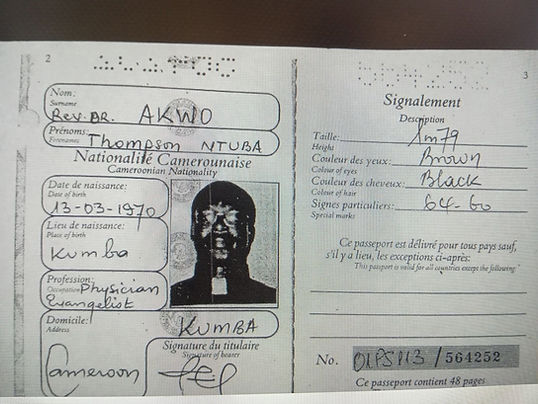 2
Nom:
Surname
Rev. DR. AKWO
Prénoms:
Forenames
Thompson NTUBA
Nationalité Camerounaise
Cameroonian Nationality
Date de naissance:
Date of birth
13-03-1970
Lieu de naissance:
Place of birth
Kumba
Profession:
Occupation
Physician
Evangelist
Domicile:
Address
KUMBA
Cameroon
Signature du titulaire
Signature of bearer
3
Signalement
Description
Taille: 1m79
Height
Couleur des yeux: Brown
Colour of eyes
Couleur des cheveux: Black
Colour of hair
Signes particuliers: 64-60
Special marks
Ce passeport est délivré pour tous pays sauf,
s'il y a lieu, les exceptions ci-après:
This passport is valid for all countries except the following
No. 01P5113 / 564252
Ce passeport contient 48 pages